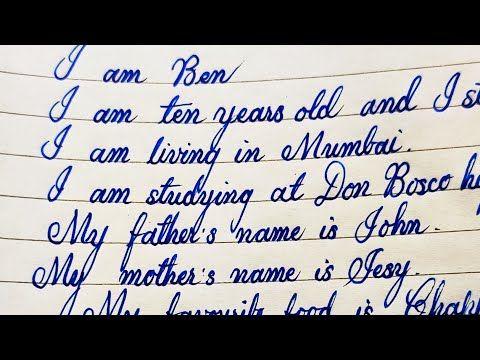 I am Ben
I am ten years old and I
I am living in Mumbai.
I am studying at Don Bosco
My father's name is John.
My mother's name is Jesy.
My favourite food is